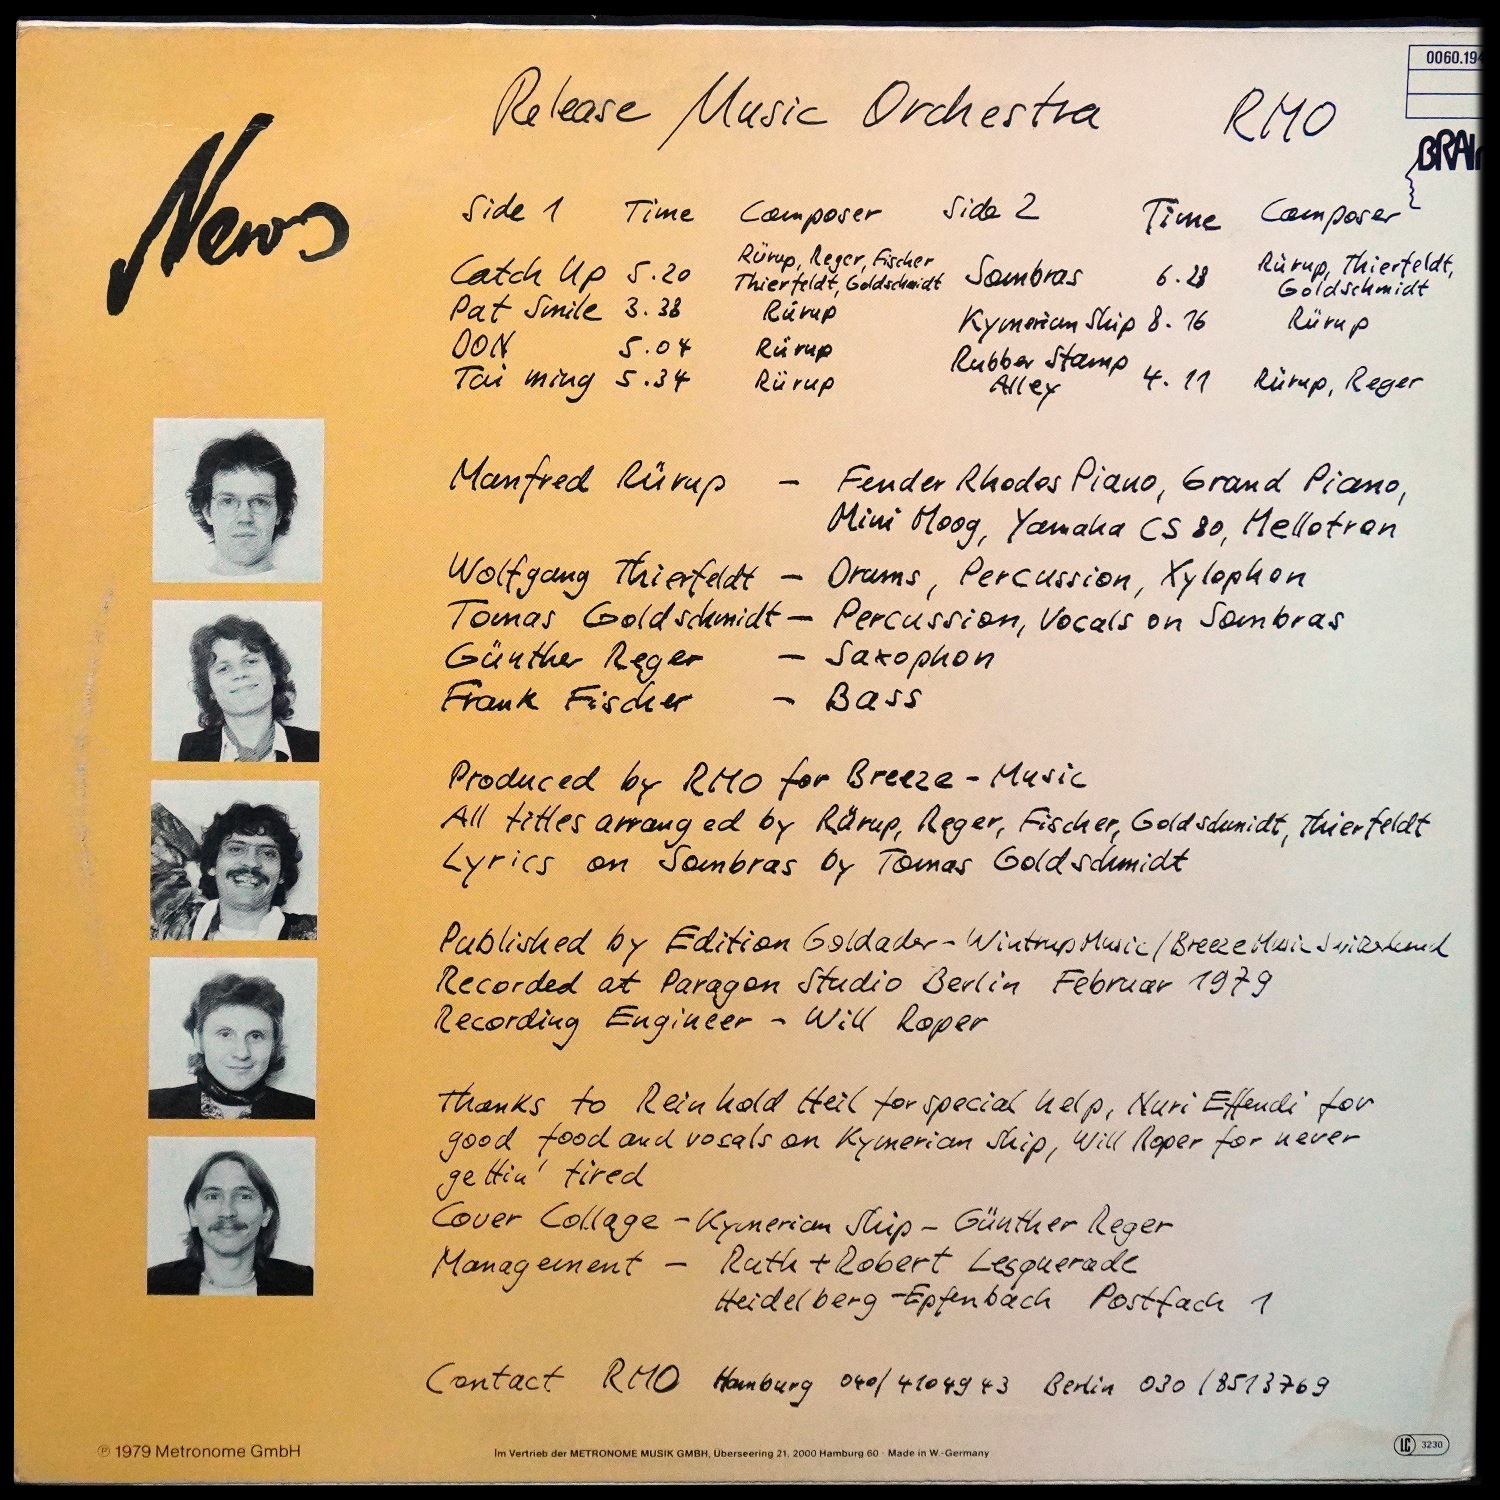 0060.194
BRAIN
Release Music Orchestra RMO
News
Side 1 Time Composer Side 2 Time Composer
Catch Up 5.20 Rürup, Reger, Fischer Thierfeldt, Goldschmidt Sombras 6.28 Rürup, Thierfeldt, Goldschmidt
Pat Smile 3.38 Rürup Kymerian Ship 8.16 Rürup
DON 5.04 Rürup Rubber Stamp Alley 4.11 Rürup, Reger
Tai ming 5.34 Rürup
Manfred Rürup – Fender Rhodes Piano, Grand Piano,
Mini Moog, Yamaha CS 80, Mellotron
Wolfgang Thierfeldt – Drums, Percussion, Xylophon
Tomas Goldschmidt – Percussion, Vocals on Sombras
Günther Reger – Saxophon
Frank Fischer – Bass
Produced by RMO for Breeze-Music
All titles arranged by Rürup, Reger, Fischer, Goldschmidt, Thierfeldt
Lyrics on Sombras by Tomas Goldschmidt
Published by Edition Goldader-Wintrup Music/Breeze Music Switzerland
Recorded at Paragon Studio Berlin Februar 1979
Recording Engineer – Will Roper
Thanks to Reinhold Heil for special help, Nuri Effendi for
good food and vocals on Kymerian Ship, Will Roper for never
gettin' tired
Cover Collage – Kymerian Ship – Günther Reger
Management – Ruth + Robert Lesquerade
Heidelberg-Epfenbach Postfach 1
Contact RMO Hamburg 040/4104943 Berlin 030/8513769
℗ 1979 Metronome GmbH
Im Vertrieb der METRONOME MUSIK GMBH, Überseering 21, 2000 Hamburg 60 · Made in W.-Germany
LC 3230